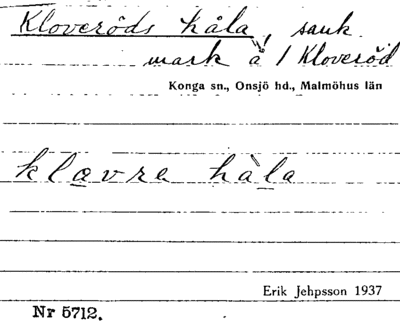 Kloveröds håla, sank
mark å 1 Kloveröd
Konga sn., Onsjö hd., Malmöhus län
klavre hàla
Erik Jehpsson 1937
Nr 5712.